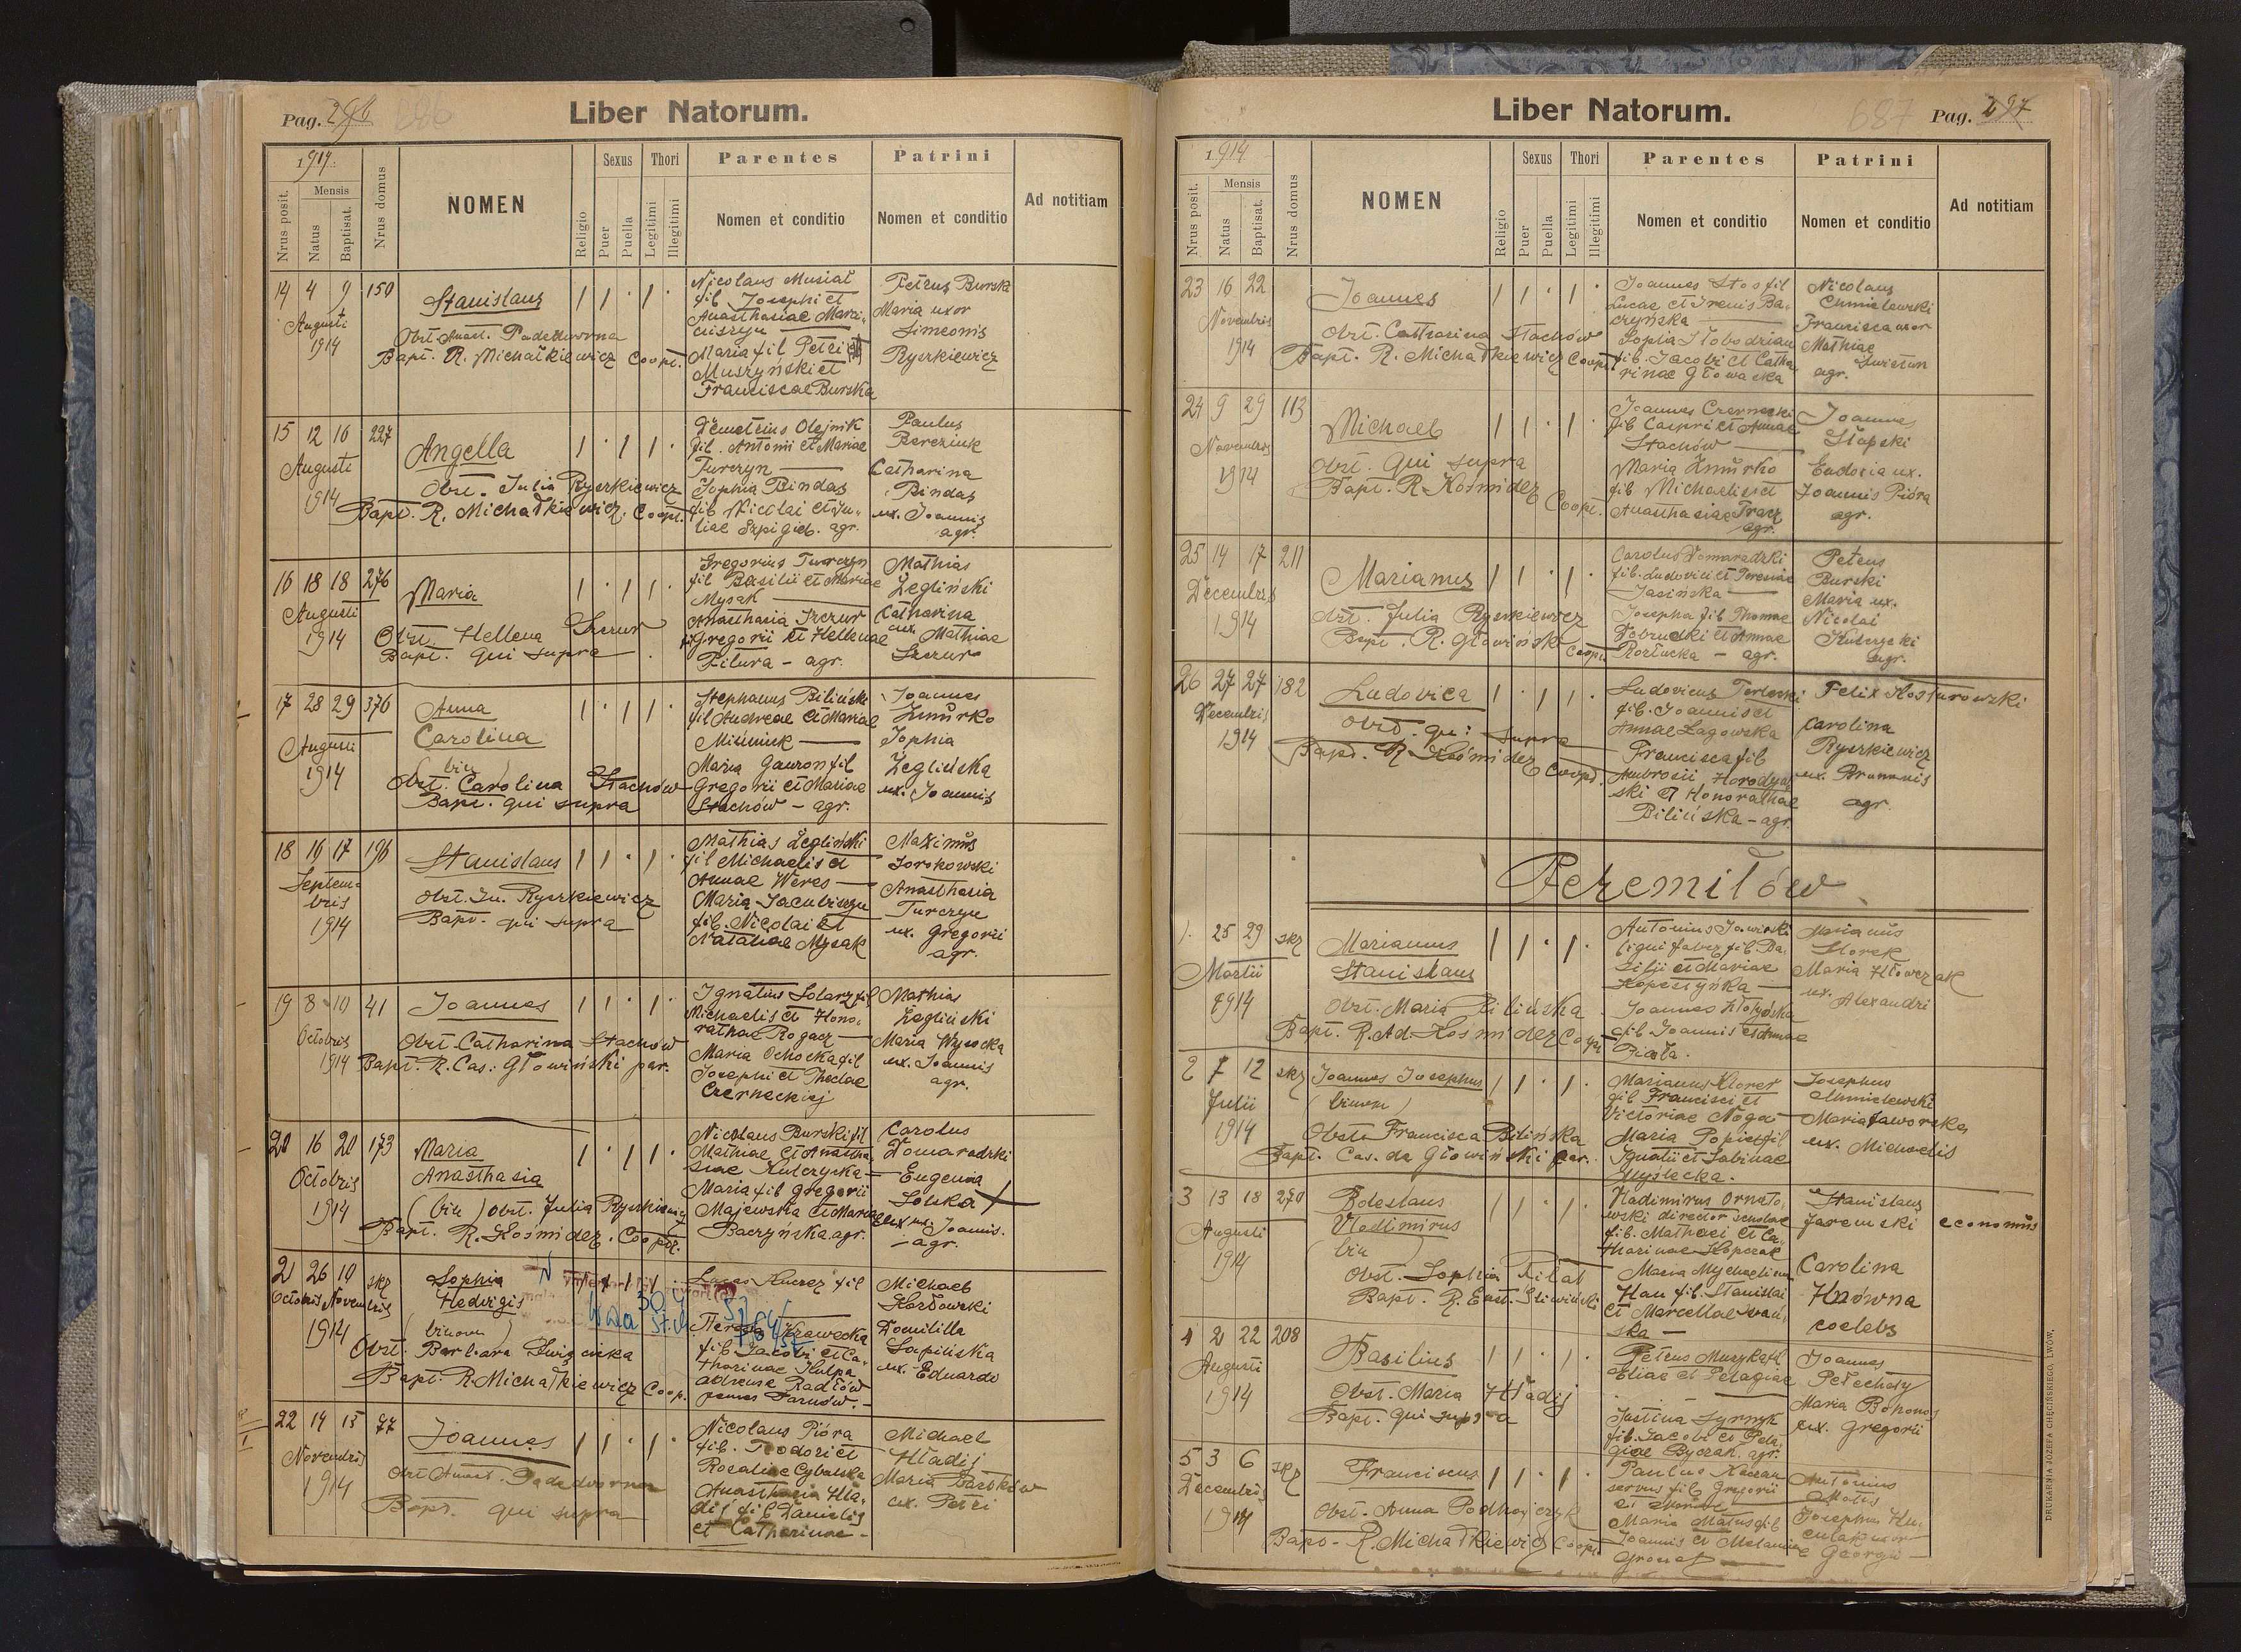 Pag. 296 686
Liber Natorum.
1914.
Nrus posit.
Mensis
Natus
Baptisat.
Nrus domus
NOMEN
Religio
Sexus
Puer
Puella
Thori
Legitimi
Illegitimi
Parentes
Nomen et conditio
Patrini
Nomen et conditio
Ad notitiam
14 4 9 150
Augusti
1914
Stanislaus
Bapt. R. Michałkiewicz Coopt.
Nicolaus Musiał
fil Josephi et
Anasthasiae
Maria fil Petri
Muszyński et
Franciscae Burska
Petrus Burski
Maria uxor
Simeonis
Ryszkiewicz
15 12 16 227
Augusti
1914
Angella
Obst. Julia Ryszkiewicz
Bapt. R. Michałkiewicz. Coopt.
Demetrius Olejnik
fil. Antonii et Mariae
Turczyn
Sophia Bindas
fil Nicolai et Ju-
liae Szpigiel. agr.
Paulus
Bereziuk
Catharina
Bindas
ux. Joannis
agr.
16 18 18 276
Augusti
1914
Maria
Obst. Hellena Szczur
Bapt. qui supra
Gregorius Turczyn
fil Basilii et Mariae
Mysak
Anasthasia Szczur
fil Gregorii et Hellenae
Pitura - agr.
Mathias
Żegliński
Catharina
ux. Mathiae
Szczur
17 28 29 376
Augusti
1914
Anna
Carolina
(bin)
Obst. Carolina Stachów
Bapt. qui supra
Stephanus Biliński
fil Andreae et Mariae
Maria Gauron fil
Gregorii et Mariae
Stachów - agr.
Joannes
Żmurko
Sophia
Żeglińska
ux. Joannis
18 16 17 196
Septem-
bris
1914
Stanislaus
Obst. Ju. Ryszkiewicz
Bapt. qui supra
Mathias Żegliński
fil Michaelis et
Annae Weres
Maria Jacubiszyn
fil. Nicolai et
Nataliae Mysak
Maximus
Sorokowski
Anasthasia
Turczyn
ux. Gregorii
agr.
19 8 10 41
Octobris
1914
Joannes
Obst. Catharina Stachów
Bapt. R. Cas. Głowiński par.
Ignatius Solarz fil
Michaelis et Hono-
rathae Rogacz
Maria Ochocka fil
Josephi et Theclae
Czerneckiej
Mathias
Żegliński
Maria Wysocka
ux. Joannis
agr.
20 16 20 173
Octobris
1914
Maria
Anasthasia
(bin) Obst. Julia Ryszkiewicz
Bapt. R. Kośmider. Coopt.
Nicolaus Burski fil
Mathiae et Anastha-
siae Kulczycka
Maria fil Gregorii
Majewska et Maria
Baczyńska. agr.
Carolus
Domaradzki
Eugenia
Solska
ux. Joannis.
agr.
21 26 10 skr
Octobris Novembris
1914
Sophia
Hedvigis
(binom)
Obst. Barbara
Bapt. R. Michałkiewicz Coop.
Lucas Kucrez fil
Krawecka
fil Jacobi et Ca-
tharinae Kulpa
Michael
Karłowski
Domitilla
Sapińska
ux. Eduardo
22 14 15 77
Novembris
1914
Joannes
Bapt. qui supra
Nicolaus Pióra
fil. Teodori et
Rosaliae Cybulska
Anasthasia Hła-
dij fil Danielis
et Catharinae -
Michael
Hładij
Maria
ux. Petri
Liber Natorum.
687 Pag. 297
1914
Nrus posit.
Mensis
Natus
Baptisat.
Nrus domus
NOMEN
Religio
Sexus
Puer
Puella
Thori
Legitimi
Illegitimi
Parentes
Nomen et conditio
Patrini
Nomen et conditio
Ad notitiam
23 16 22
Novembris
1914
Joannes
Obst. Catharina Stachów
Bapt. R. Michałkiewicz Coopt.
Joannes Stos fil
Lucae et Irenis Ba-
czyńska
Sophia Słobodzian
fil. Jacobi et Catha-
rinae Głowacka
Nicolaus
Chmielewski
Francisca uxor
Mathiae
agr.
24 9 29 113
Novembris
1914
Michael
Obst. qui supra
Bapt. R. Kośmider
Coopt.
Joannes Czernecki
fil Caspri et Annae
Stachów
Maria Żmurko
fil Michaelis et
Anasthasiae Tracz
agr.
Joannes
Słapski
Eudoxia ux.
Joannis Pióra
agr.
25 14 17 211
Decembris
1914
Marianus
Obst. Julia Ryszkiewicz
Bapt. R. Głowiński
Coopt.
Carolus Domaradzki
fil. Ludovici et Teresiae
Jasińska
Josepha fil Thomae
Dobrucki et Annae
Rozłucka - agr.
Petrus
Burski
Maria ux.
Nicolai
Kulczycki
agr.
26 27 27 182
Decembris
1914
Ludovica
Obst. qui supra
Bapt. R. Kośmider Coopt.
Ludovicus Terlecki
fil. Joannis et
Annae Łagowska
Francisca fil
Ambrosii Horodyń-
ski et Honorathae
Bilińska - agr.
Felix Kosturowski
Carolina
Ryszkiewicz
ux. Brunonis
agr.
Peremiłów
1. 25 29 skr
Martii
1914
Marianus
Stanislaus
Obst. Maria Bilińska
Bapt. R. Ad. Kośmider Coopt.
Antonius Jaworski
ligni faber fil. Ba-
silii et Mariae
fil. Joannis et Annae
Marianus
Maria
ux. Alexandri
2 7 12 skr
Julii
1914
Joannes Josephus
(binom)
Obst. Francisca Bilińska
Bapt. Cas. de Głowiński par.
Marianus
fil Francisci et
Victoriae Noga
Maria Popiel fil
Ignatii et Sabinae
Myślecka.
Josephus
Chmielewski
Maria Jaworska
ux. Michaelis
3 13 18 270
Augusti
1914
Boleslaus
Vladimirus
(bin)
Obst. Sophia Fiłat
Bapt. R. Eust.
Vladimirus Ornato-
wski director scholae
fil. Mathaei et Ca-
tharinae
Maria Mychaelina
Hau fil. Stanislai
et Marcellae Iwań-
ska -
Stanislaus
Jaremski economus
Carolina
Hnówna
coelebs
4 2 22 208
Augusti
1914
Basilius
Obst. Maria Hładij
Bapt. qui supra
Petrus Muzyka fil
Eliae et Pelagiae
Justina Syrnyk
fil. Jacobi et Pela-
giae Byczak. agr.
Joannes
Pełechaty
Maria Bohonos
ux. Gregorii
5 3 6 skr
Decembris
1914
Franciscus
Obst. Anna Podhajczyk
Bapt. R. Michałkiewicz Coopt.
Paulus
servus fil Gregorii
Maria Matus fil
Joannis et Melaniae
Antonius
Matus
uxor
Georgii
DRUKARNIA JÓZEFA CHĘCIŃSKIEGO, LWÓW.